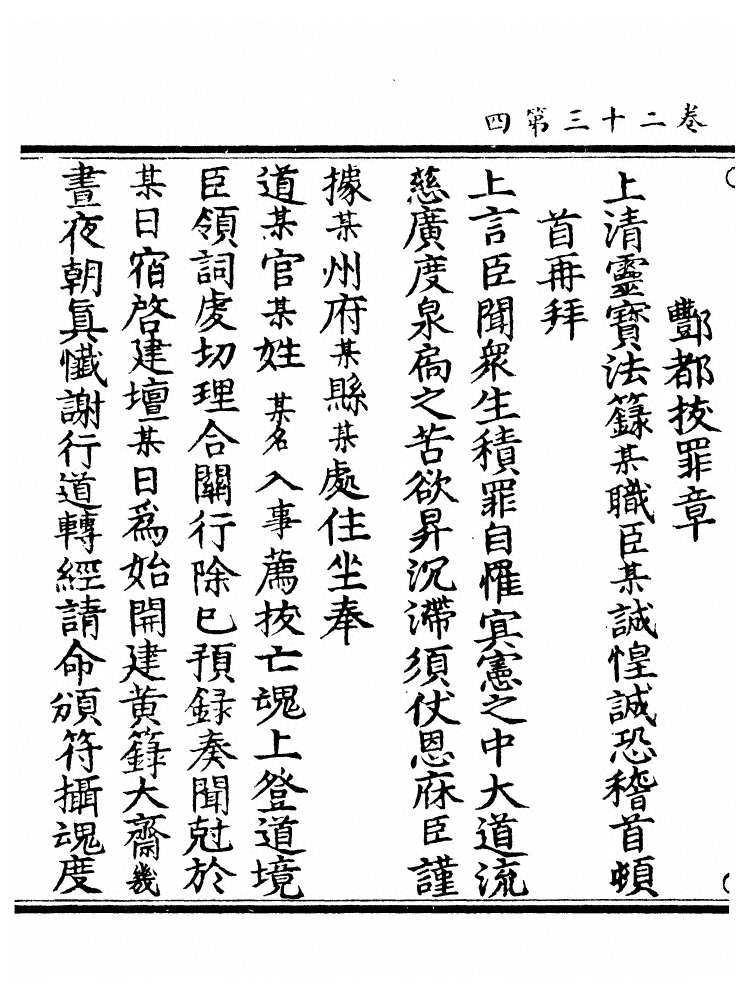 卷二十三第四
酆都拔罪章
上清靈寶法籙某職臣某誠惶誠恐稽首頓
首再拜
上言臣聞衆生積罪自罹㝠憲之中大道流
慈廣度泉扃之苦欲昇沉滯須仗恩庥臣謹
據某州府某縣某處住坐奉
道某官某姓某名入事薦拔亡魂上登道境
臣領詞虔切理合關行除已預録奏聞尅於
某日宿啓建壇某日爲始開建黄籙大齋幾
晝夜朝真懺謝行道轉經請命頒符攝魂度